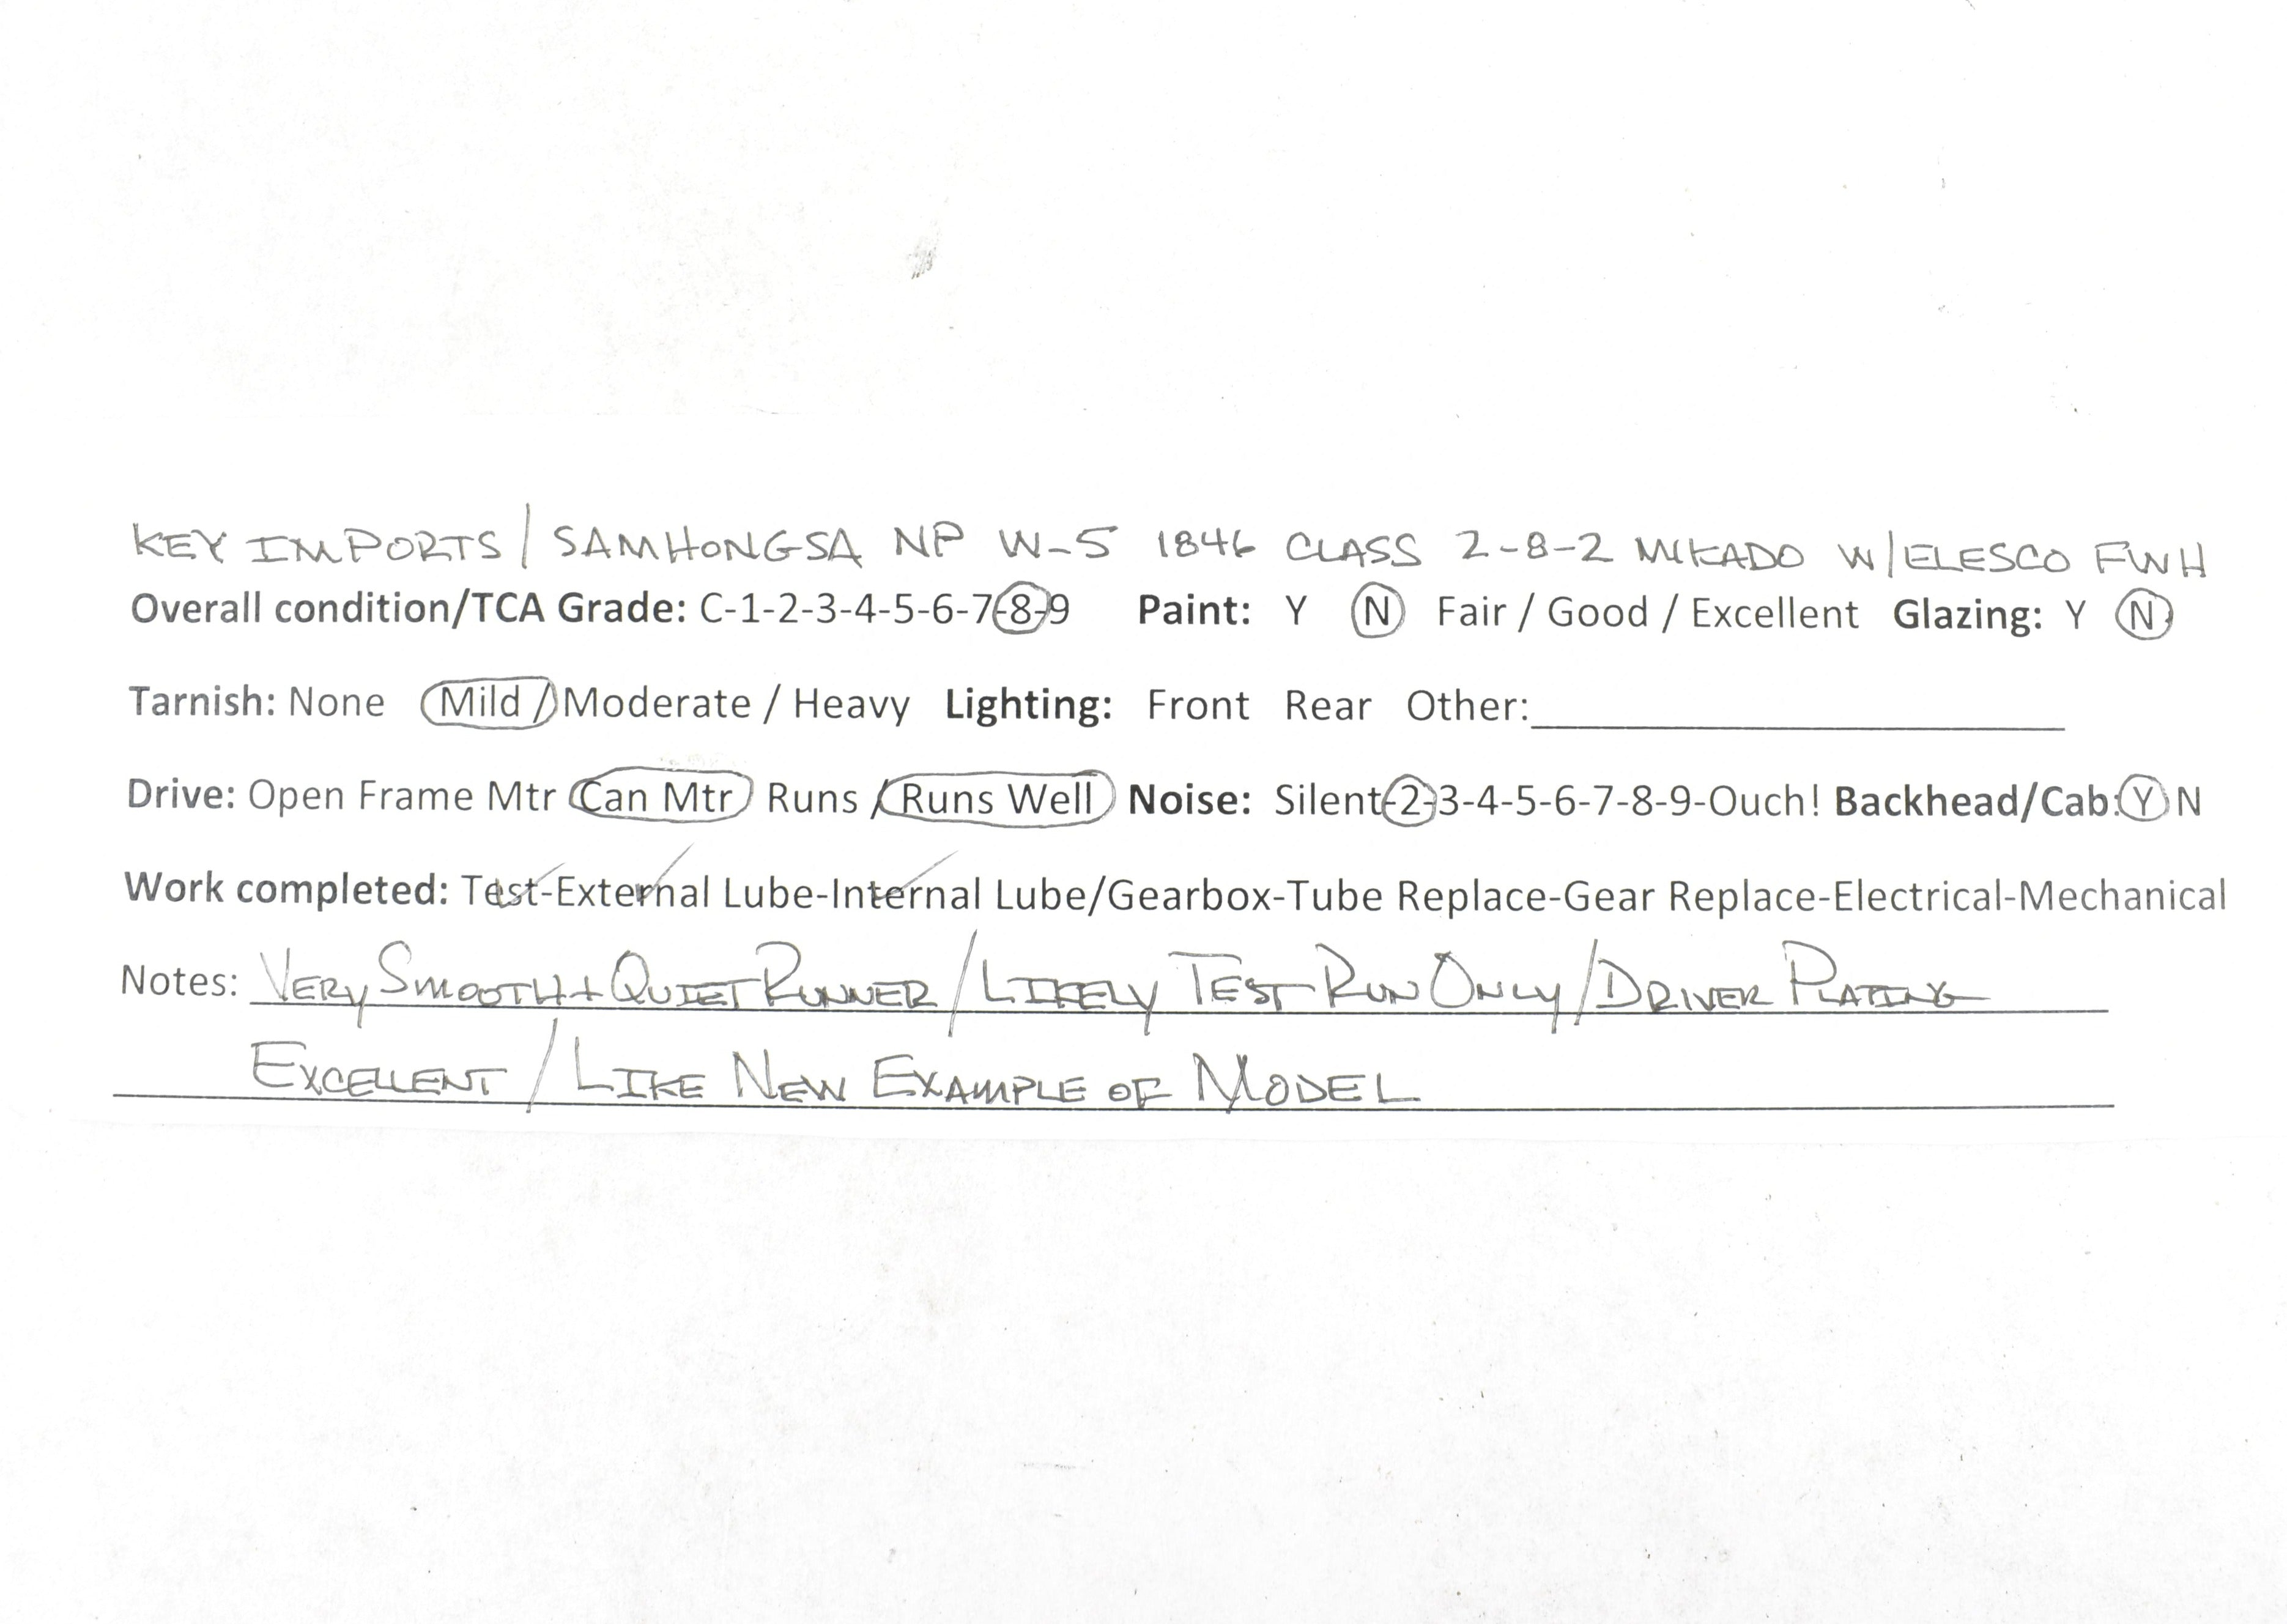 KEY IMPORTS / SAMHONGSA NP W-5 1846 CLASS 2-8-2 MIKADO W/ELESCO FWH
Overall condition/TCA Grade: C-1-2-3-4-5-6-7-8-9 Paint: Y N Fair / Good / Excellent Glazing: Y N
Tarnish: None Mild / Moderate / Heavy Lighting: Front Rear Other:
Drive: Open Frame Mtr Can Mtr Runs / Runs Well Noise: Silent-2-3-4-5-6-7-8-9-Ouch! Backhead/Cab: Y N
Work completed: Test-External Lube-Internal Lube/Gearbox-Tube Replace-Gear Replace-Electrical-Mechanical
Notes: VERY SMOOTH + QUIET RUNNER / LIKELY TEST RUN ONLY / DRIVER PLATING
EXCELLENT / LIKE NEW EXAMPLE OF MODEL